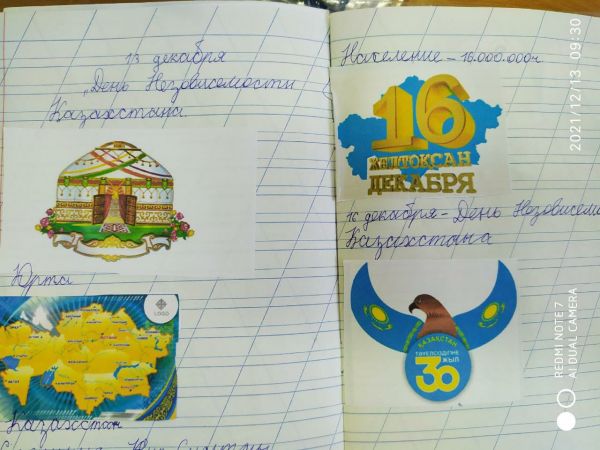 13 декабря
„День Независемости
Казахстана.
Юрта
LOGO
Казахстан
Население – 16.000.000ч
16
ЖЕЛТОҚСАН
ДЕКАБРЯ
16 декабря – День Независемо
Казахстана
ҚАЗАҚСТАН
ТӘУЕЛСІЗДІГІНЕ
30 ЖЫЛ
2021/12/13 09:30
REDMI NOTE 7
AI DUAL CAMERA